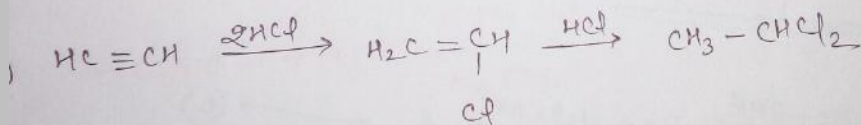 ) HC ≡ CH 2HCl → H₂C = CH HCl → CH₃ - CHCl₂
|
Cl